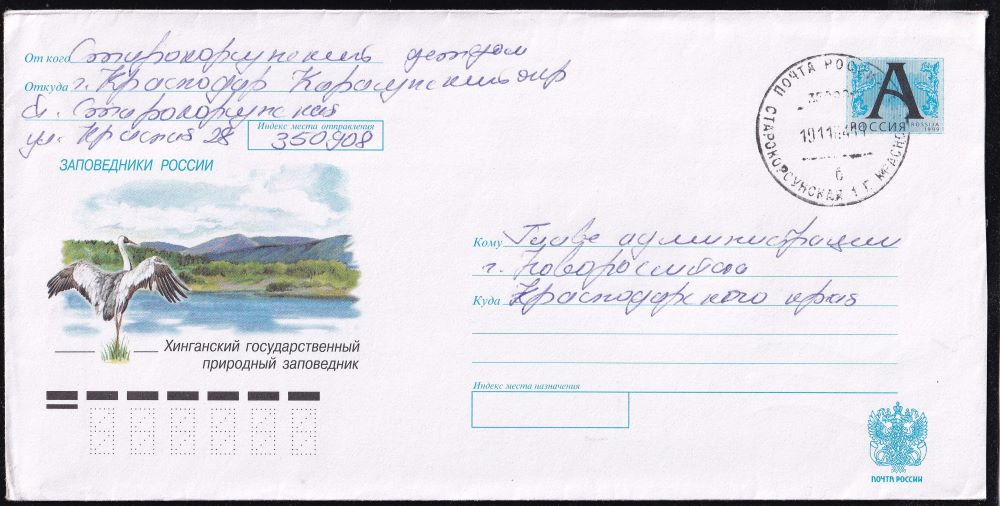 От кого Старокорсунский детдом
Откуда г. Краснодар Карасунский окр
ст. Старокорсунская
ул. Красная 28
Индекс места отправления
350908
ЗАПОВЕДНИКИ РОССИИ
Хинганский государственный
природный заповедник
ПОЧТА РОССИИ
СТАРОКОРСУНСКАЯ 1 Г. КРАСНО
б
А
РОССИЯ
ROSSIJA
1999
Кому Главе администрации
г. Новороссийска
Куда Краснодарского края
Индекс места назначения
ПОЧТА РОССИИ